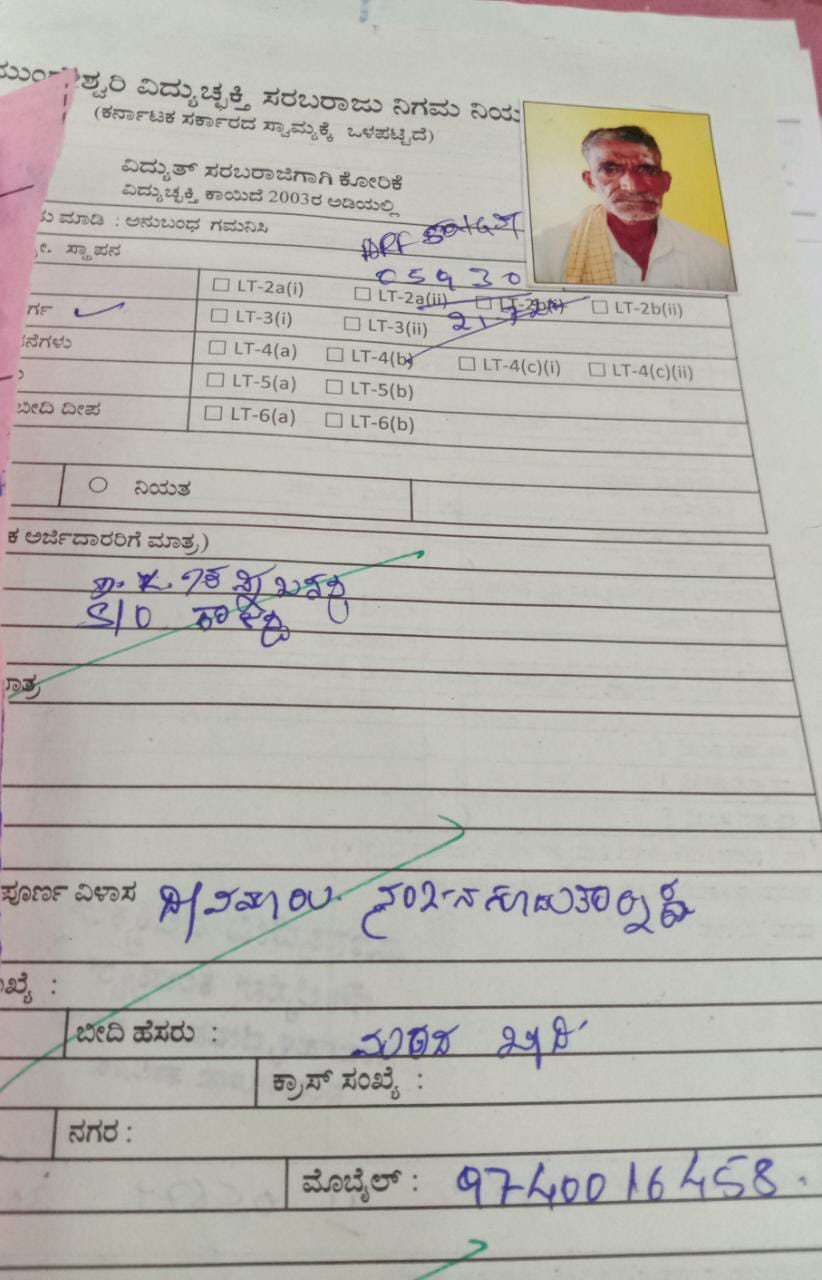 ಶ್ವರಿ ವಿದ್ಯುಚ್ಛಕ್ತಿ ಸರಬರಾಜು ನಿಗಮ ನಿಯ
(ಕರ್ನಾಟಕ ಸರ್ಕಾರದ ಸ್ವಾಮ್ಯಕ್ಕೆ ಒಳಪಟ್ಟಿದೆ)
ವಿದ್ಯುತ್ ಸರಬರಾಜಿಗಾಗಿ ಕೋರಿಕೆ
ವಿದ್ಯುಚ್ಛಕ್ತಿ ಕಾಯಿದೆ 2003ರ ಅಡಿಯಲ್ಲಿ
ಮಾಡಿ : ಅನುಬಂಧ ಗಮನಿಸಿ
ಸ್ಥಾಪನ
05930
☐ LT-2a(i) ☐ LT-2a(ii) ☐ LT-2b(i) ☐ LT-2b(ii)
ರ್ಗ ☐ LT-3(i) ☐ LT-3(ii)
ನೆಗಳು ☐ LT-4(a) ☐ LT-4(b) ☐ LT-4(c)(i) ☐ LT-4(c)(ii)
☐ LT-5(a) ☐ LT-5(b)
ಬೀದಿ ದೀಪ ☐ LT-6(a) ☐ LT-6(b)
○ ನಿಯತ
ಕ ಅರ್ಜಿದಾರರಿಗೆ ಮಾತ್ರ)
S/O
ಾತ್ರ
ಪೂರ್ಣ ವಿಳಾಸ
ಖ್ಯೆ :
ಬೀದಿ ಹೆಸರು : ಮಠದ ಬೀದಿ
ಕ್ರಾಸ್ ಸಂಖ್ಯೆ :
ನಗರ :
ಮೊಬೈಲ್ : 9740016458.